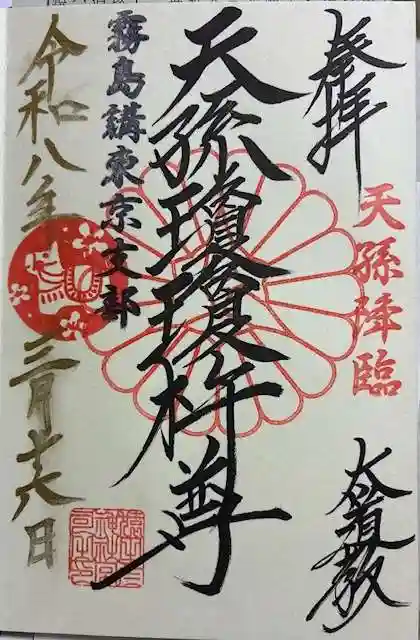 奉拝
天孫降臨
大首教
天孫瓊瓊杵尊
霧島講東京支部
令和八年三月十八日